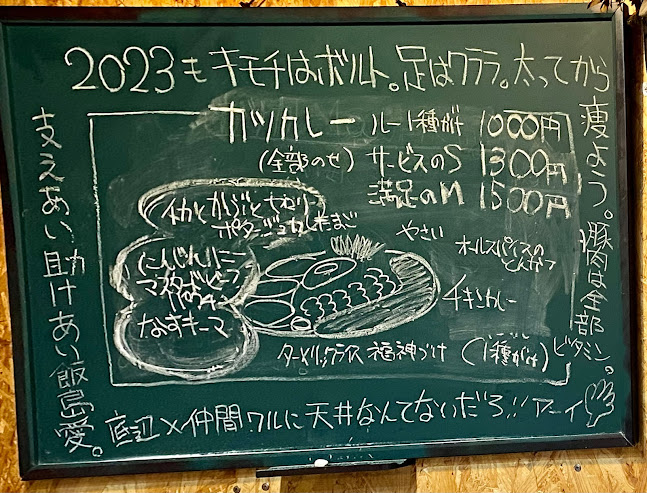 2023もキモチはボルト。足はクララ。太ってから
痩よう。豚肉は全部
ビタミン。
カツカレー ルー1種がけ 1000円
(全部のせ) サービスのS 1300円
満足のM 1500円
イカとからぶとちねり
ポタージュカレ たまご
やさい
オールスパイスの
とんかつ
にんじんに
マスタードビーフ
なすキーマ
チキンカレー
ターメリックライス 福神づけ (1種がけ)
支えあい助けあい飯島愛。
底辺×仲間ワルに天井なんてないだろ!!アーイ